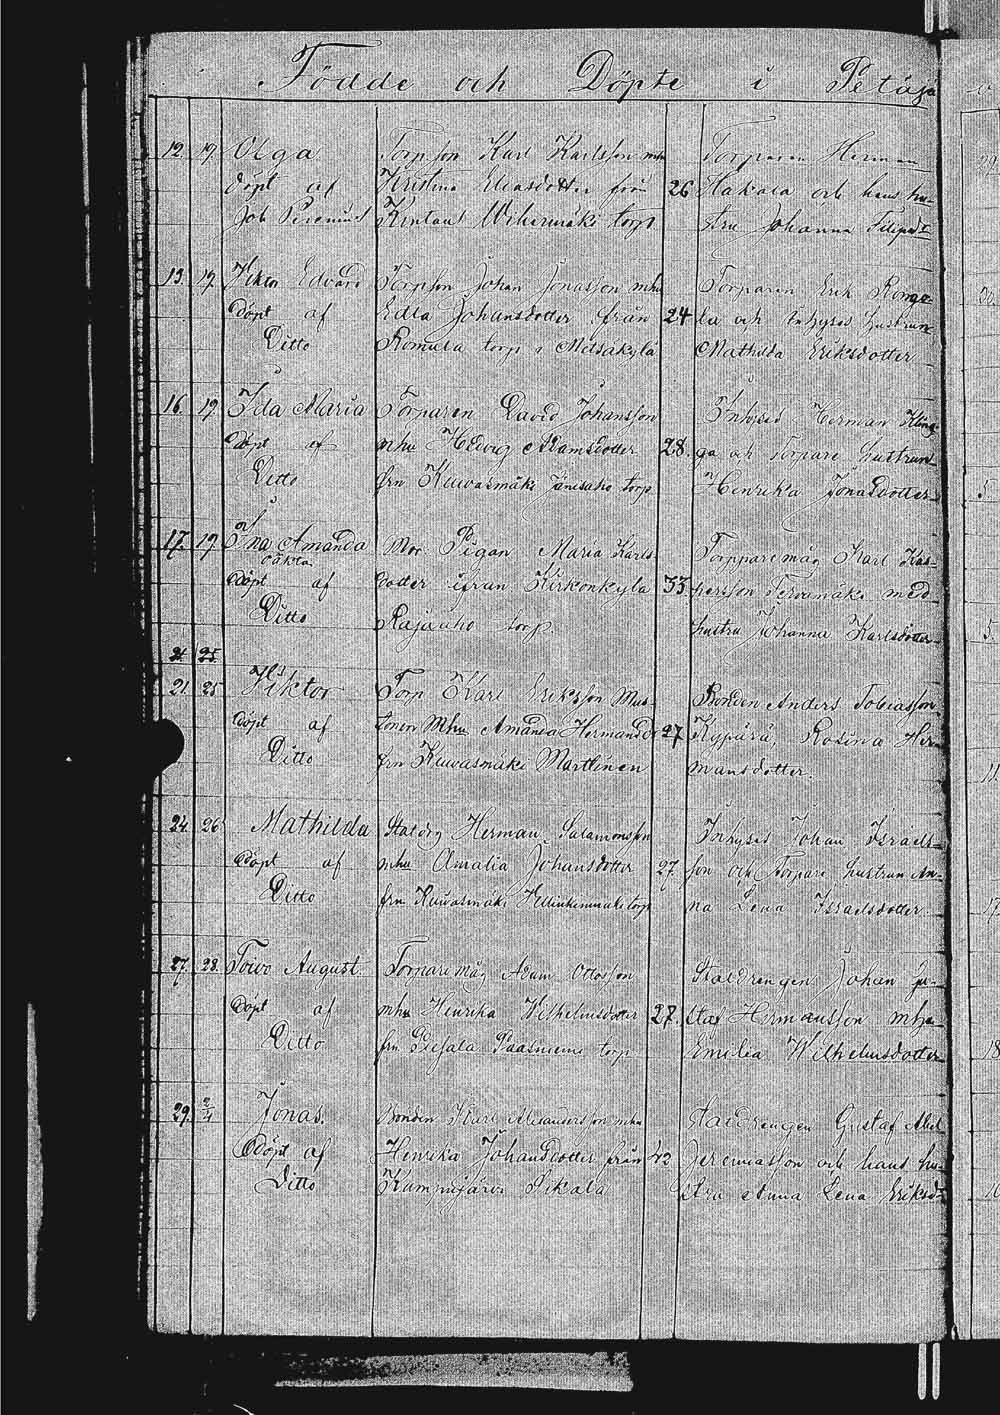 Födde och Döpte i Petäjä
12. 19. Olga Torpson Karl Karlsson mhu Torparen Herman
döpt af Kristina Eliasdotter från 26 Hakala och hans hu-
Job Perenius Kintaus Wihermäki torp stru Johanna Filipsd:r
13. 19. Viktor Edvard Torpson Johan Jonasson mhu Torparen Erik Ronga-
döpt af Edla Johansdotter från 24 la och Inhyses hustrun
Ditto Romula torp i Metsäkylä Mathilda Eriksdotter
16. 19. Ida Maria Torparen David Johansson Inhyses Herman
döpt af mhu Hedvig Adamsdotter 28. ga och Torpare hustrun
Ditto frn Kuivasmäki Jänesaho torp Henrika Jonasdotter
17. 19. Ina Amanda Mor Pigan Maria Karls- Torparemåg Karl Kas-
oäkta
döpt af dotter ifrån Kirkonkylä 33 persson Tervamäki med
Ditto Rajaaho torp. hustru Johanna Karlsdotter
21. 25.
21. 25 Viktor Torp Karl Eriksson Mus- Bonden Anders Tobiasson
döpt af tonen Mhu Amanda Hermansd 27 Kypärä, Rosina Her-
Ditto frn Kuivasmäki Marttinen mansdotter.
24. 26 Mathilda Staldrg Herman Salamonsson Inhyses Johan Israels-
döpt af mhu Amalia Johansdotter 27. son och Torpare hustrun An-
Ditto frn Kuivasmäki torp na Lena Israelsdotter
27. 28. Toivo August Torparemåg Adam Ottosson Staldrengen Johan Gu-
döpt af mhu Henrika Wilhelmsdotter 27. staf Hermansson mhu
Ditto frn Piesala Paasniemi torp Emilia Wilhelmsdotter
29. 2/4 Jonas. Bonden Karl Alexandersson mhu Staldrengen Gustaf Abel
Döpt af Henrika Johansdotter från 42 Jeremiasson och hans hu-
Ditto Kumpujärvi Sikala stru Anna Lena Eriksd:r